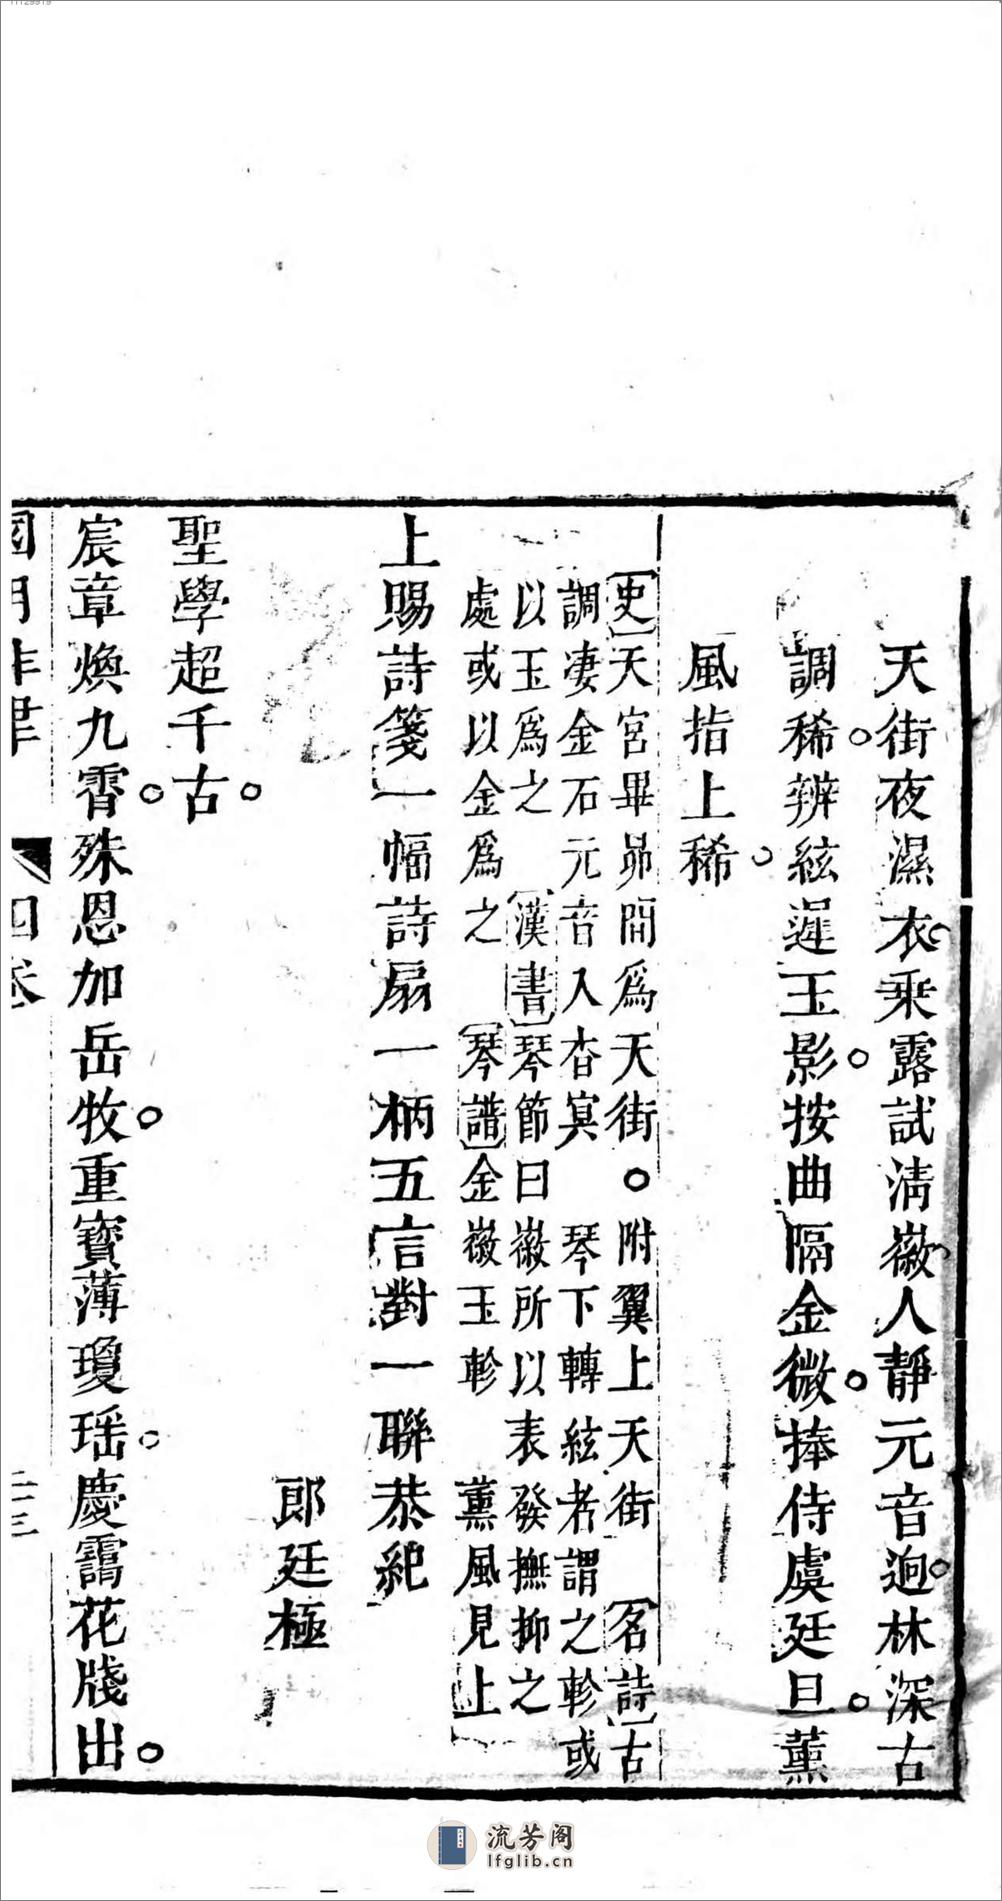 天街夜濕衣乘露試淸徽人靜元音逈林深古
調稀辨絃遲玉影按曲隔金微捧侍虞廷旦薰
風指上稀
史天宮畢昴間爲天街○附翼上天街 名詩古
調凄金石元音入杳冥 琴下轉絃者謂之軫或
以玉爲之 漢書琴節曰徽所以表發撫抑之
處或以金爲之 琴譜金徽玉軫 薰風見上
上賜詩箋一幅詩扇一柄五言對一聯恭紀
郎廷極
聖學超千古
宸章煥九霄殊恩加岳牧重寶薄瓊瑶慶靄花牋出
四卷
流芳阁
lfglib.cn
11129919